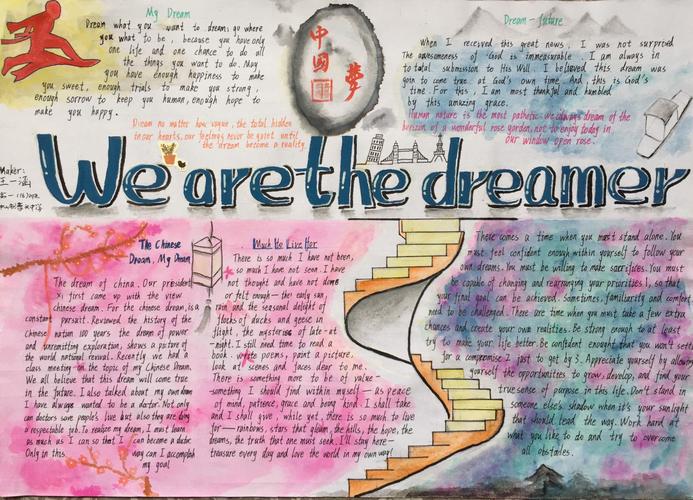 My Dream
Dream what you want to dream; go where
you want to be, because you have only
one life and one chance to do all
the things you want to do. May
you have enough happiness to make
you sweet, enough trials to make you strong,
enough sorrow to keep you human, enough hope to
make you happy.
Dream no matter how vague, the total hidden
in our hearts, our feelings never be quiet until
the dream become a reality.
中國
夢
Dream-future
When I received this great news, I was not surprised
The awesomeness of God is immeasurable. I am always in
total submission to His Will. I believed this dream was
goin to come true at God's own time. And, this is God's
time. For this, I am most thankful and humbled
by this amazing grace.
Human nature is the most pathetic: we always dream of the
horizon of a wonderful rose garden, not to enjoy today in
our window open rose.
Maker:
We are the dreamer
The Chinese
Dream, My Dream
The dream of china. Our president
Xi first came up with the view
chinese dream. For the chinese, dream is a
constant pursuit. Reviewed the history of the
Chinese nation 100 years the dream of power
and unremitting exploration, shows a picture of
the world national revival. Recently we had a
class meeting on the topic of my Chinese Dream.
We all believe that this dream will come true
in the future. I also talked about my own dream
I have always wanted to be a doctor. Not only
can doctors save people's live but also they are doing
a respectable job. To realize my dream, I must learn
as much as I can so that I can become a doctor.
Only in this way can I accomplish
my goal
Much To Live For
There is so much I have not been,
so much I have not seen. I have
not thought and have not done
or felt enough — the early sun,
rain and the seasonal delight of
flocks of ducks and geese in
flight, the mysteries of late-at
-night. I still need time to read a
book, write poems, paint a picture,
look at scenes and faces dear to me.
There is something more to be of value —
something I should find within myself — as peace
of mind, patience, grace and being kind. I shall take
and I shall give, while yet, there is so much to live
for — rainbows, stars that gleam, the hills, the hope, the
dreams, the truth that one must seek. I'll stay here —
treasure every day and love the world in my own way!
There comes a time when you must stand alone. You
must feel confident enough within yourself to follow your
own dreams. You must be willing to make sacrifices. You must
be capable of changing and rearranging your priorities, so that
your final goal can be achieved. Sometimes, familiarity and comfort
need to be challenged. There are time when you must take a few extra
chances and create your own realities. Be strong enough to at least
try to make your life better. Be confident enought that you won't settle
for a compromise just to get by. Appreciate yourself by allow
yourself the opportunities to grow, develop, and find your
true sense of purpose in this life. Don't stand in
someone else's shadow when it's your sunlight
that should lead the way. Work hard at
what you like to do and try to overcome
all obstacles.